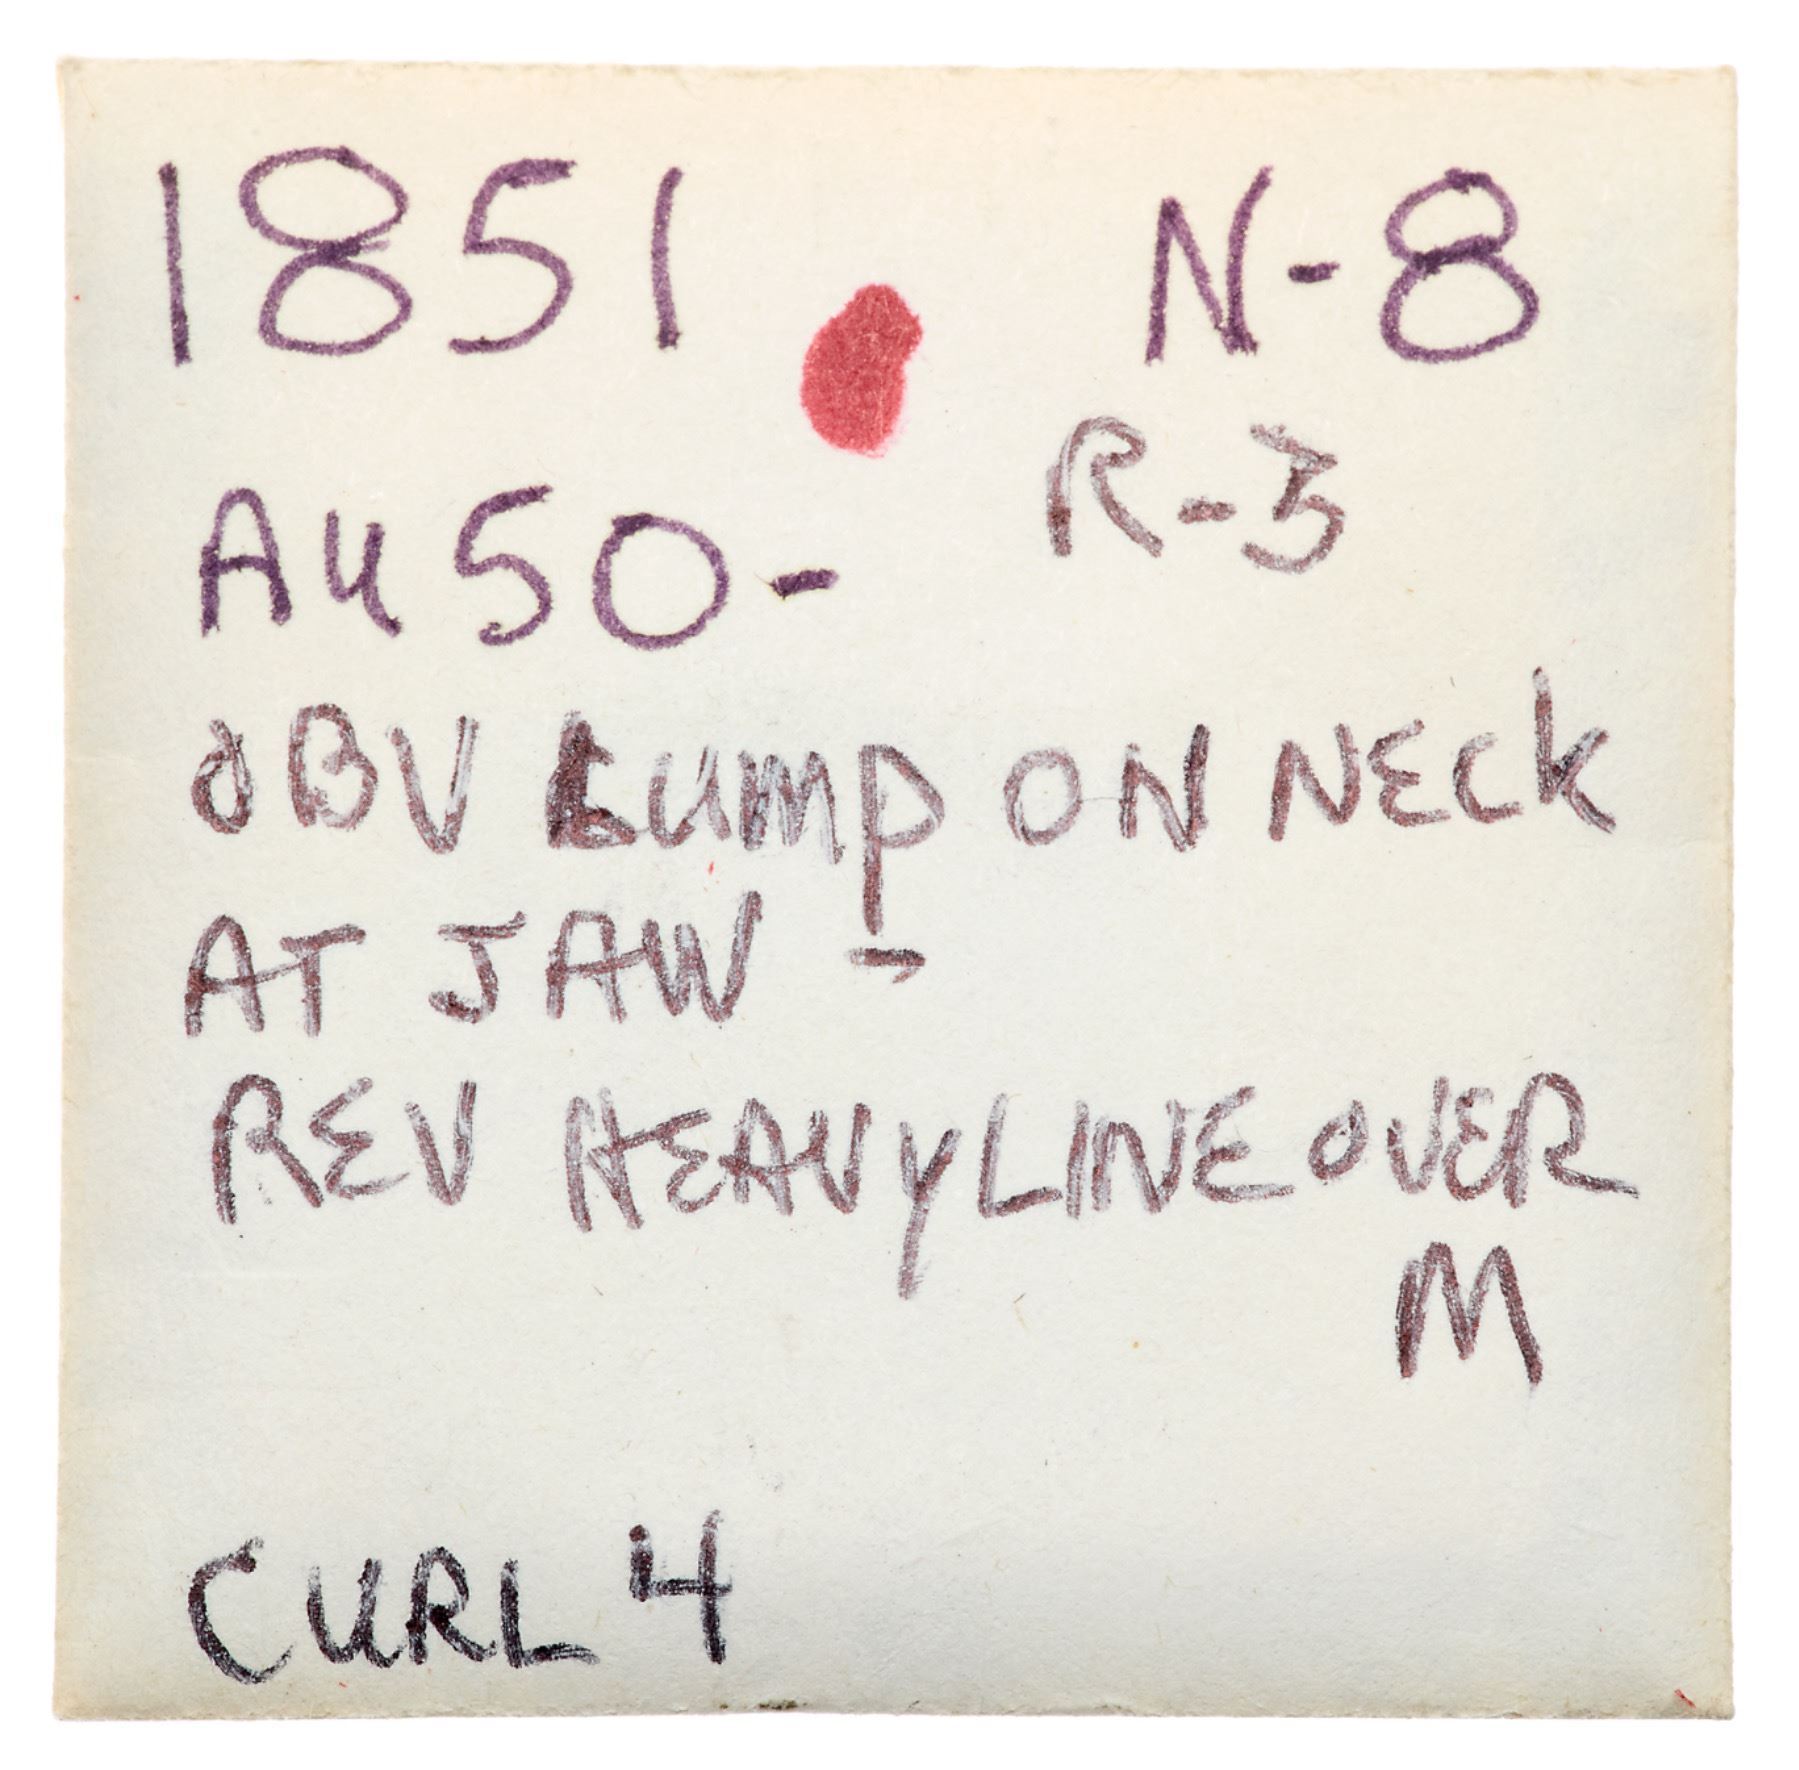 1851 N-8
R-3
AU 50-
OBV BUMP ON NECK
AT JAW -
REV HEAVY LINE OVER
M
CURL 4